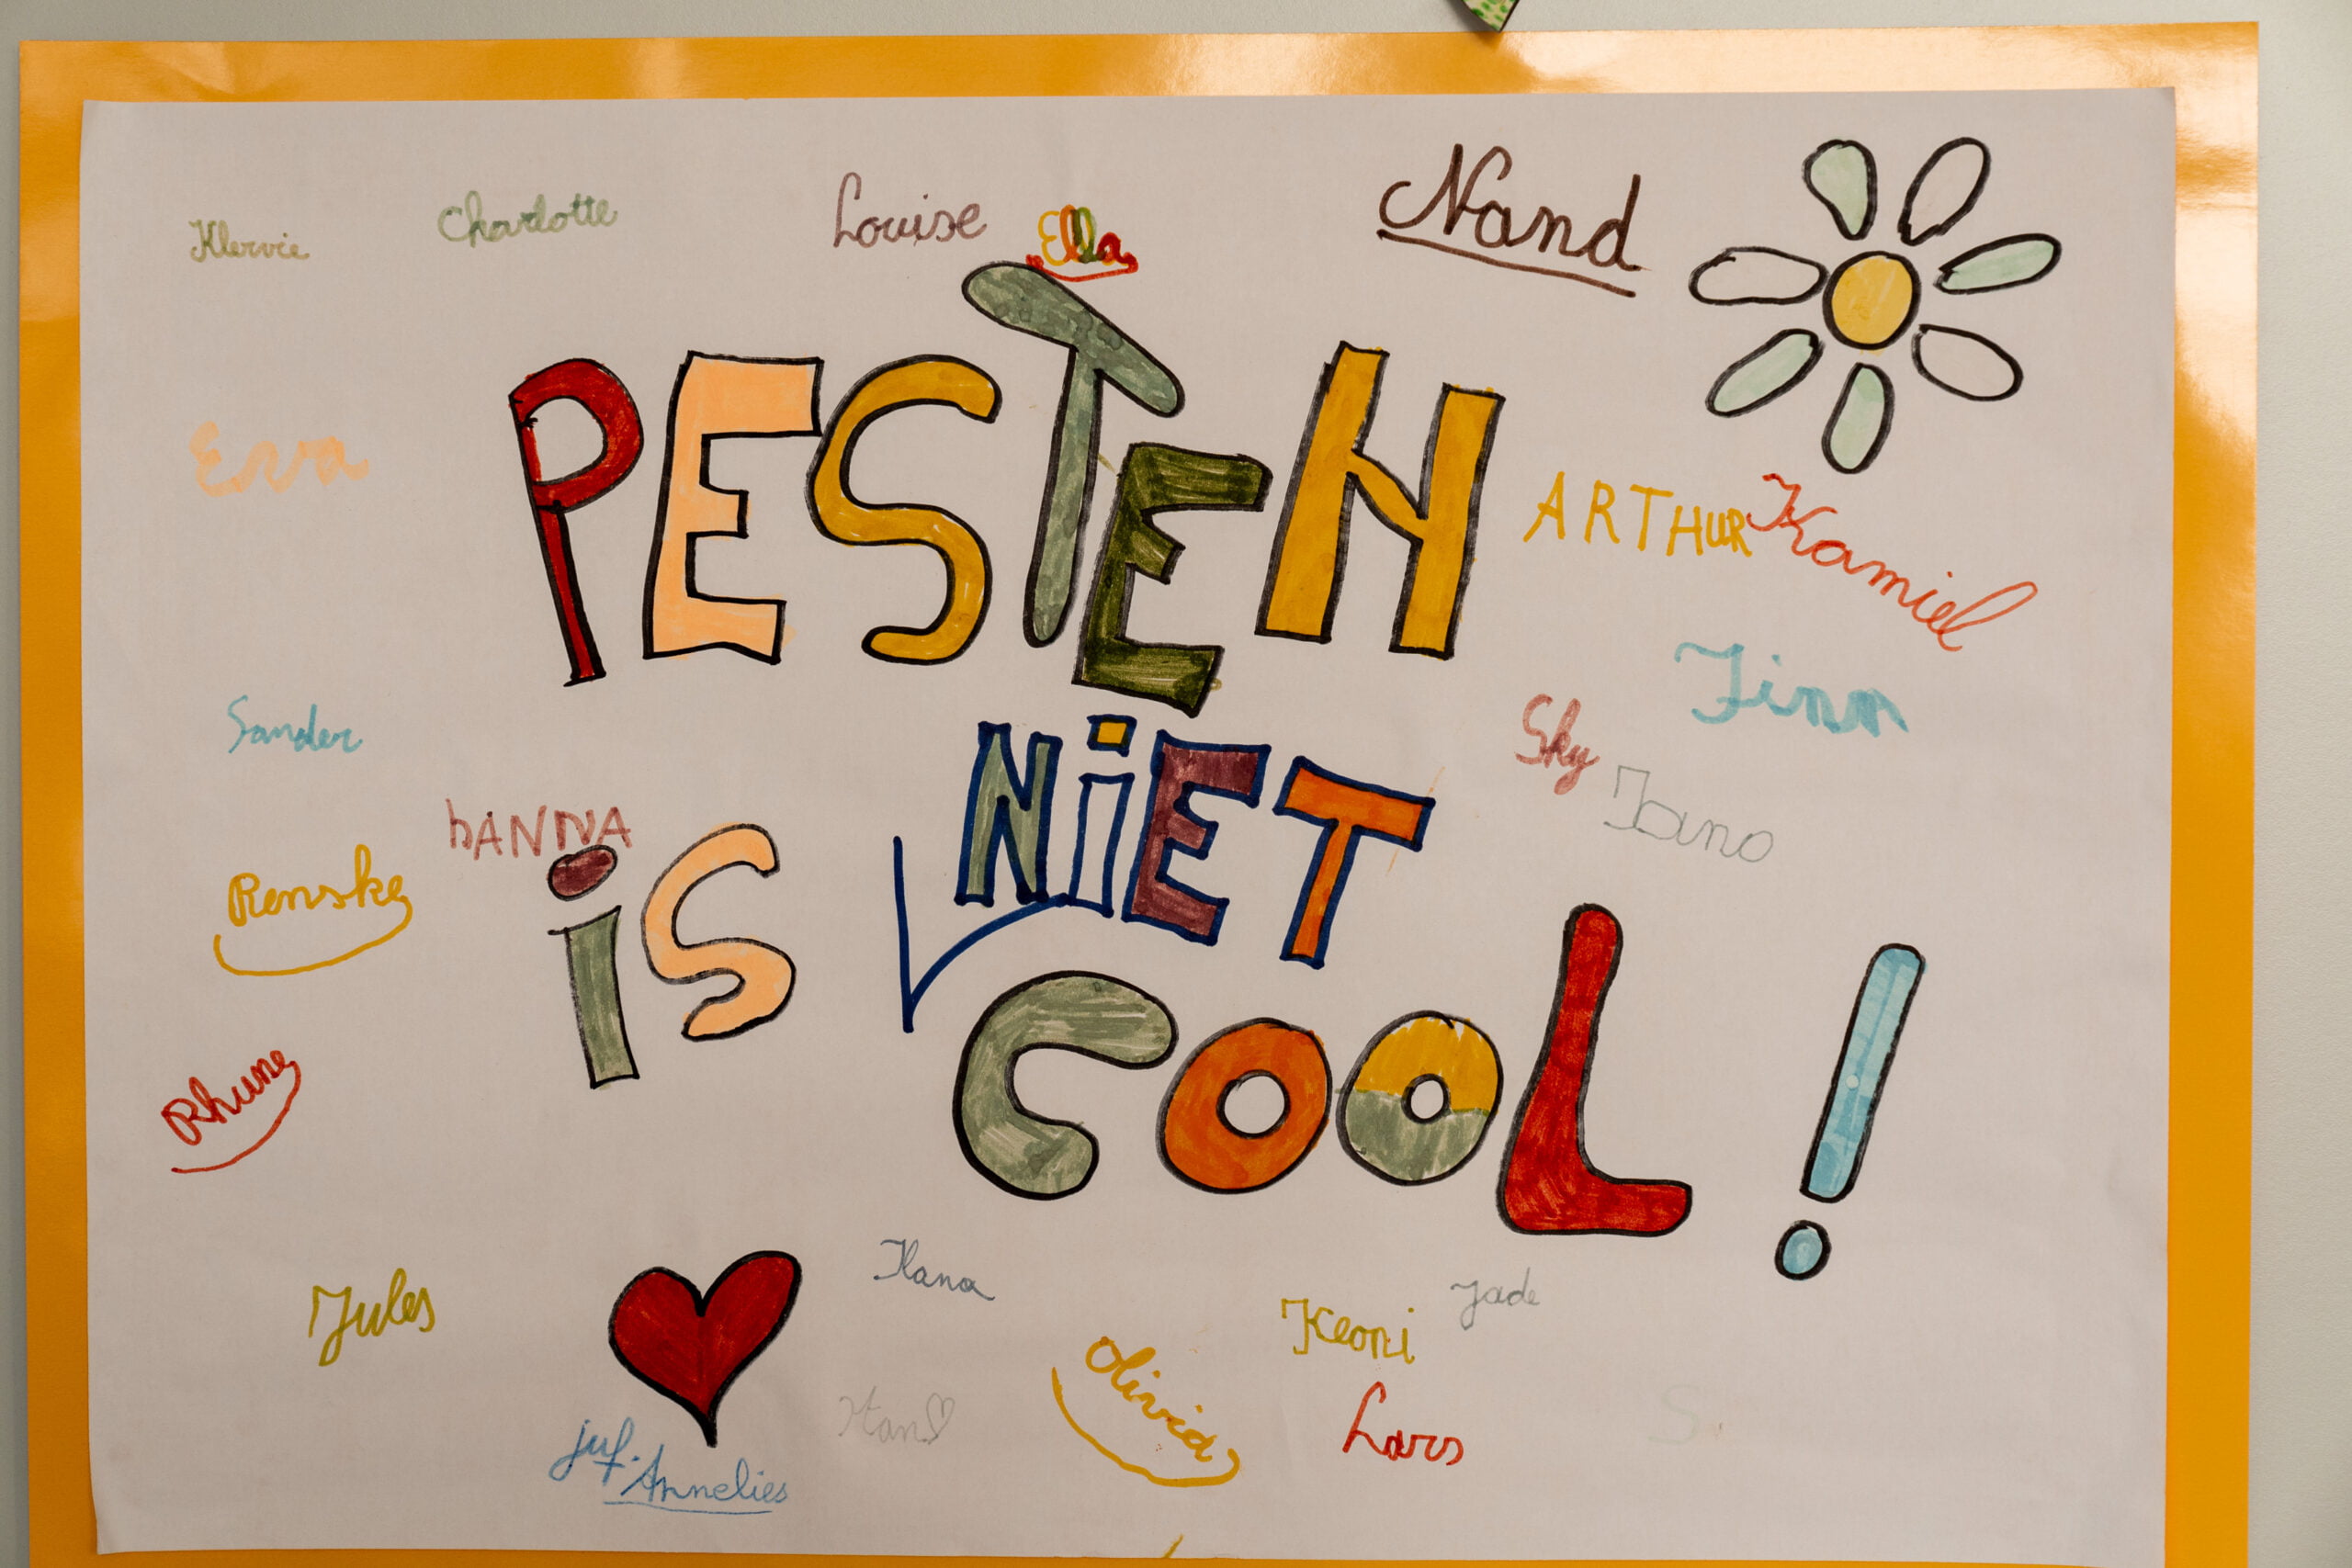 Klervie
Charlotte
Louise
Ella
Nand
PESTEN
Eva
ARTHUR
Kamiel
Finn
Sander
Sky
NiET
hANNA
is
Renske
COOL!
Rhune
Jules
Ilana
Jade
Keoni
Olivia
Lars
juf. Annelies